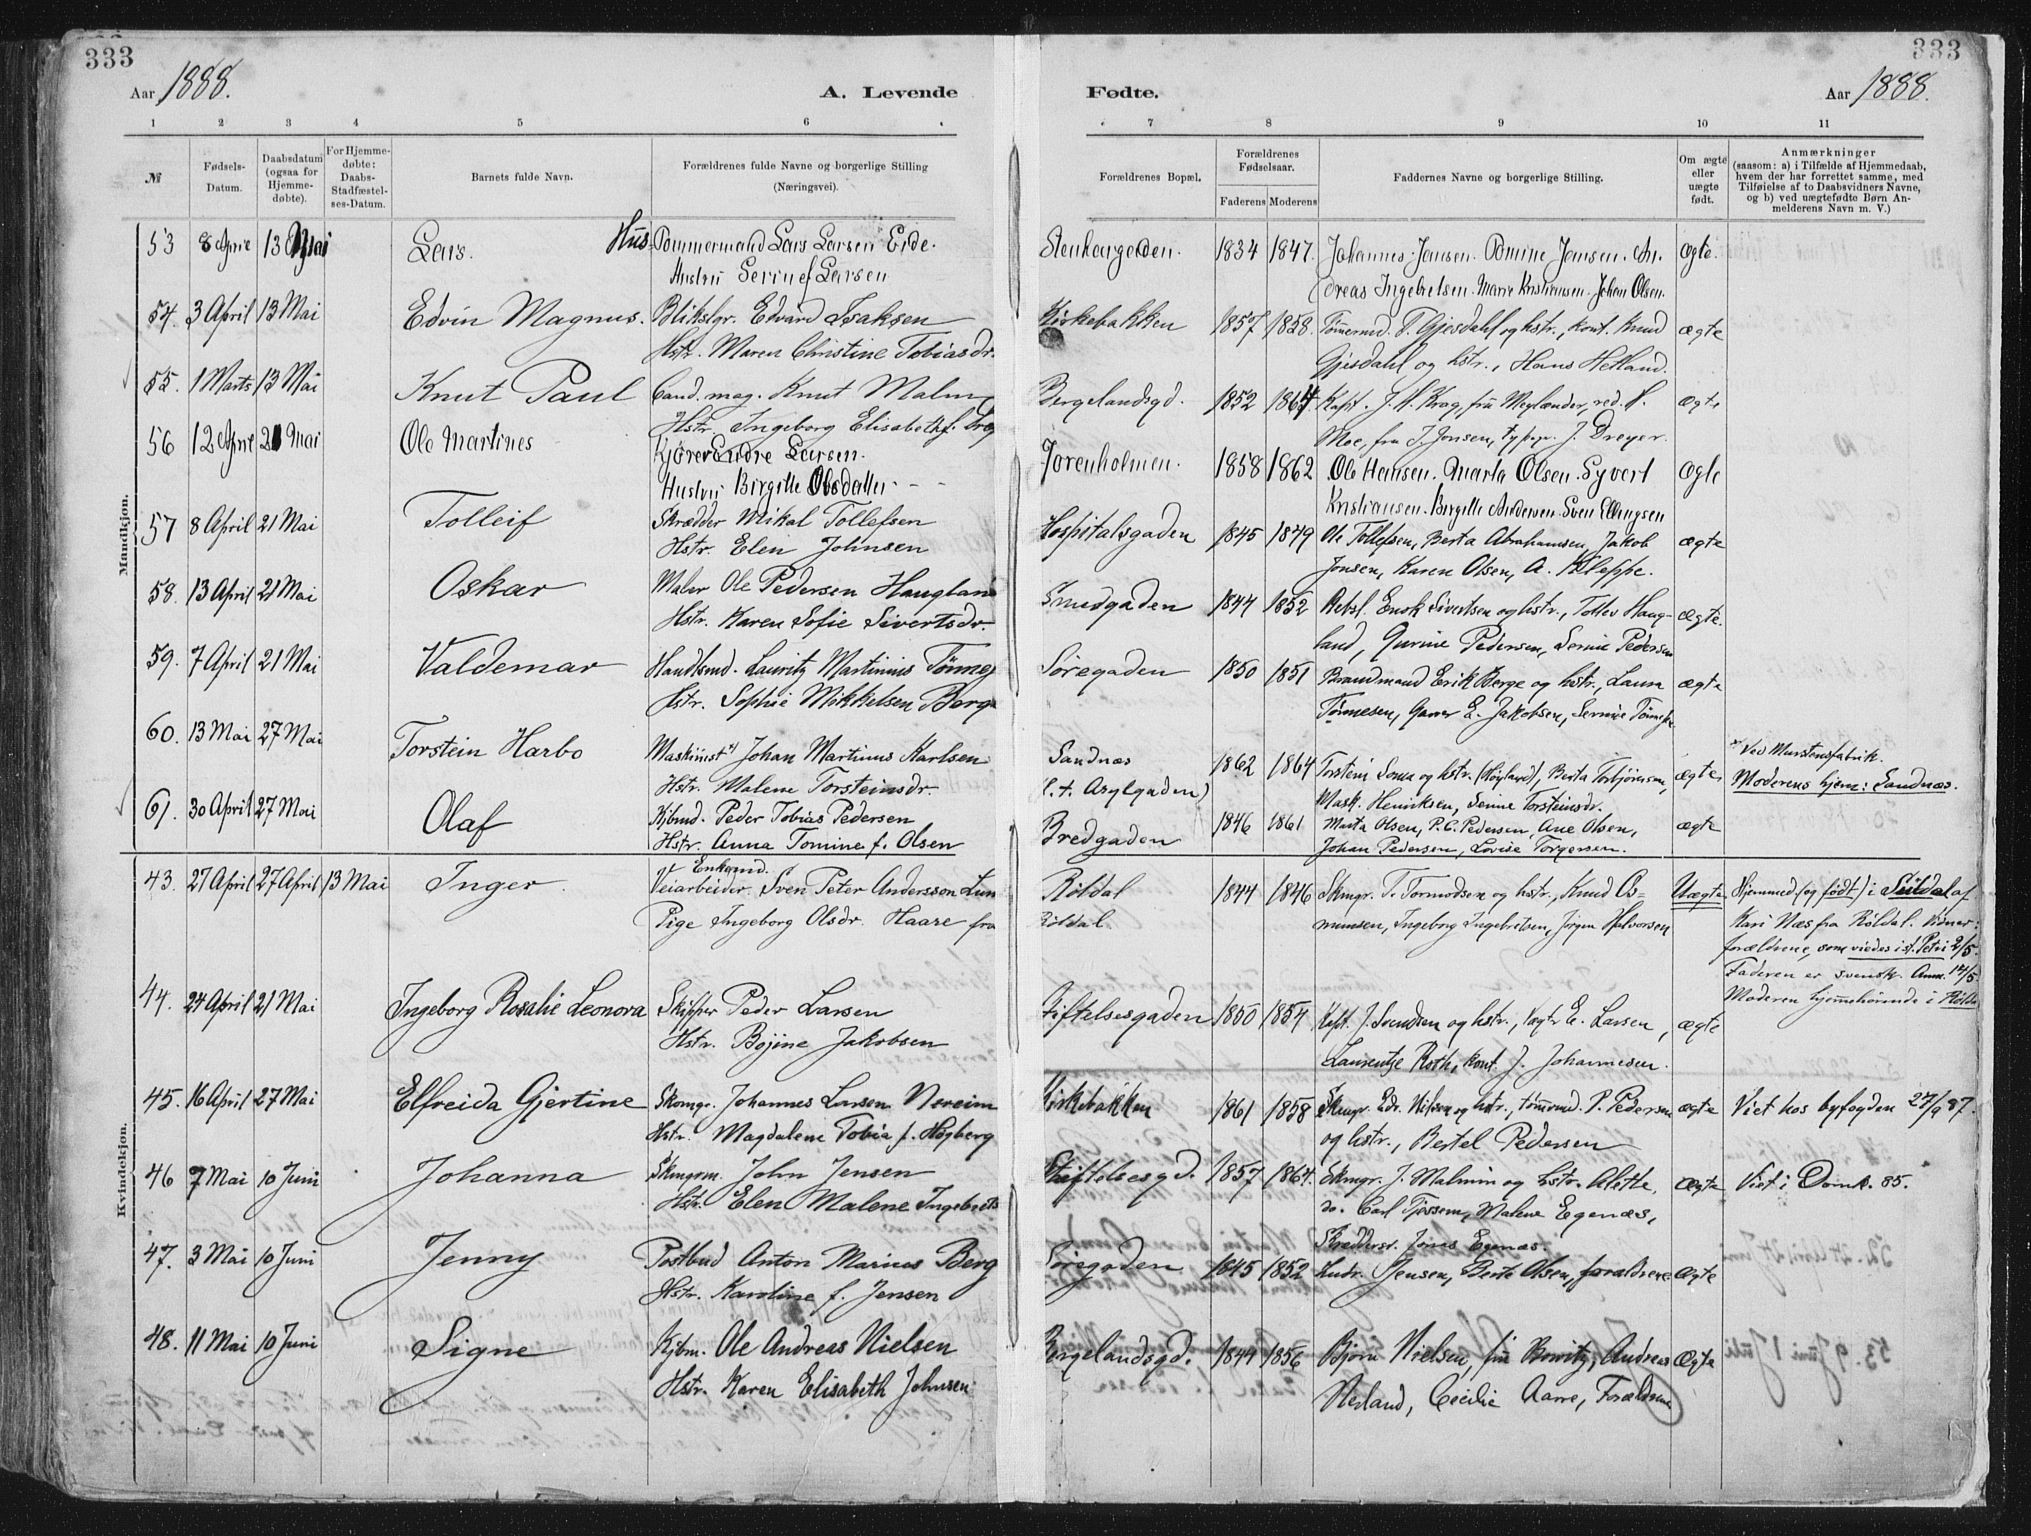 333
Aar 1888.
A. Levende
Fødte.
Aar 1888.
333
1 2 3 4 5 6
7 8 9 10 11
№
Fødsels-
Datum.
Daabsdatum
(ogsaa for
Hjemme-
døbte).
For Hjemme-
døbte:
Daabs-
Stadfæstel-
ses-Datum.
Barnets fulde Navn.
Forældrenes fulde Navne og borgerlige Stilling
(Næringsvei).
Forældrenes Bopæl.
Forældrenes
Fødselsaar.
Faderens Moderens
Faddernes Navne og borgerlige Stilling.
Om ægte
eller
uægte
født.
Anmærkninger
(saasom: a) i Tilfælde af Hjemmedaab,
hvem der har forrettet samme, med
Tilføielse af to Daabsvidners Navne,
og b) ved uægtefødte Børn An-
melderens Navn m. V.)
Mandkjøn.
53 8 April 13 Mai Lars. Hus Tømmermand Lars Larsen Eide. Stenkargaden. 1834 1847. Johannes Jansen. Tomine Jansen. An-
Hustru Serine f Larsen dreas Ingebretsen. Marie Kristiansen. Johan Olsen. ægte.
54. 3 April 13 Mai Edvin Magnus. Blikslgr. Edvard Isaksen Kirkebakken 1857 1858. Tømmermd. T. Gjesdahl og hstr., kont. Knud ægte
Hstr. Maren Christine Tobiasdr. Gjesdahl og hstr., Hans Hetland.
55. 1 Marts 13 Mai Knut Paul Cand. mag. Knut Malm Bergelandsgd. 1852 1864. Kapt. J. H. Krag, fru Meylænder, red. H. ægte
Hstr. Ingeborg Elisabeth f. Krag Moe, fru J. Jonsen, typogr. J. Dreyer.
56 12 April 21 Mai Ole Martines Kjører Endre Larsen. Jorenholmen. 1858 1862 Ole Hansen. Marta Olsen. Syvert ægte
Hustru Birgitte Olsdatter Kristiansen. Birgitte Andersen. Sven Ellingsen
57 8 April 21 Mai Tolleif Skrædder Mikal Tollefsen Hospitalsgaden 1845 1849 Ole Tollefsen, Berta Abrahamsen, Jakob ægte
Hstr. Elen Johnsen Jonsen, Karen Olsen, A. Kleppe.
58. 13 April 21 Mai Oskar Maler Ole Pedersen Haugland Smedgaden 1844 1852 Rebsl. Enok Sivertsen og hstr., Tollev Haug- ægte.
Hstr. Karen Sofie Sivertsdr. land, Gurine Pedersen, Serine Pedersen
59. 7 April 21 Mai Valdemar Handlsmd. Lauritz Martinius Tønnes Søregaden 1850 1851 Brandmand Erik Berge og hstr., Laura ægte
Hstr. Sophie Mikkelsen Berge Tønnesen, Garver E. Jakobsen, Serine Tønnes
60. 13 Mai 27 Mai Torstein Harbo Maskinist Johan Martinus Karlsen Sandnæs 1862 1864 Torstein Soma og hstr. (Høyland), Berta Torbjørnsen, ægte. Ved Murstensfabrik.
Hstr. Malene Torsteinsdr. (l. t. Asylgaden) Mask. Henriksen, Serine Torsteinsdr. Moderens hjem: Sandnæs.
61. 30 April 27 Mai Olaf Kjbmd. Peder Tobias Pedersen Bredgaden 1846 1861 Marta Olsen, P. C. Pedersen, Ane Olsen, ægte
Hstr. Anna Tomine f. Olsen Johan Pedersen, Lovise Torgersen.
Kvindekjøn.
43. 27 April 27 April 13 Mai Inger Enkemd.
Veiarbeider Sven Peter Andersson Lun Røldal 1844 1846 Skmgr. T. Tormodsen og hstr., Knud Os- Uægte Hjemmed. (og født) i Suldal af
Pige Ingeborg Olsdr. Haare fra Røldal. mundsen, Ingeborg Ingebretsen, Jørgen Halvorsen Kari Næs fra Røldal. Vidner:
forældrene, som viedes i St. Petri 2/5.
Faderen er svensk. Anm. 14/5.
Moderen hjemhørende i Røldal
44. 24 April 21 Mai Ingeborg Rosalie Leonora Skipper Peder Larsen Stiftelsesgaden 1850 1854 Kapt. J. Svendsen og hstr., Vægter E. Larsen, ægte
Hstr. Bojine Jakobsen Laurentze Roth, kont. J. Johannesen.
45. 16 April 27 Mai Elfreida Gjertine Skomgr. Johannes Larsen Nereim Kirkebakken 1861 1858 Skmgr. Edv. Nilsen og hstr., tømmrmd. P. Pedersen ægte Viet hos byfogden 27/9 87.
Hstr. Magdalene Tobia f. Høgberg og hstr., Bertel Pedersen
46 7 Mai 10 Juni Johanna Skmgrm. John Jensen Stiftelsesgd. 1857 1864. Skmgr. J. Malmin og hstr. Alette, ægte Viet i Domk. 85.
Hstr. Elen Malene Ingebrets do. Carl Tjøssem, Malene Egenæs,
Skræddersv. Jonas Egenæs.
47. 3 Mai 10 Juni Jenny Postbud Anton Marius Berg Søregaden 1845 1852 Hndr. Jensen, Berte Olsen, forældrene ægte
Hstr. Karoline f. Jensen
48. 11 Mai 10 Juni Signe Kjbm. Ole Andreas Nielsen Bergelandsgd. 1844 1856 Bjørn Nielsen, fru Bowitz, Andreas ægte
Hstr. Karen Elisabeth Johnsen Nerland, Cecilie Aarre, Forældrene